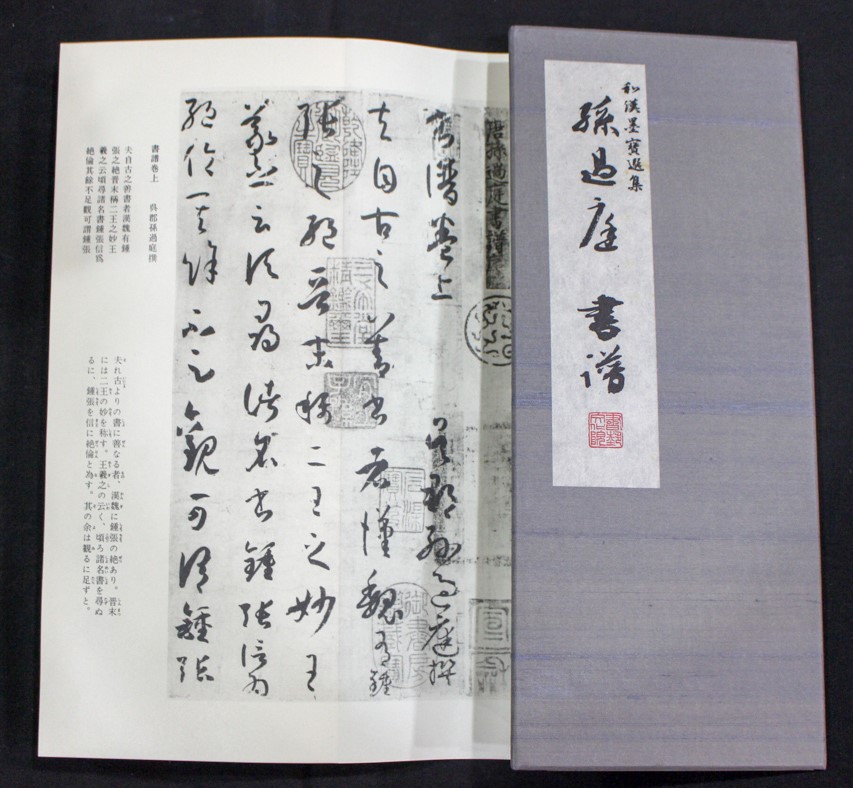 和漢墨寶選集
孫過庭 書譜
唐孫過庭書譜
書譜卷上 吳郡孫過庭撰
夫自古之善書者漢魏有鍾
張之絕晉末稱二王之妙王
羲之云頃尋諸名書鍾張信為
絕倫其餘不足觀可謂鍾張
書譜卷上 呉郡孫過庭撰
夫自古之善書者漢魏有鍾
張之絶晉末稱二王之妙王
羲之云頃尋諸名書鍾張信爲
絶倫其餘不足觀可謂鍾張
夫れ古よりの書に善なる者、漢魏に鍾張の絶あり、晋末
には二王の妙を称す。王羲之の云く、頃ろ諸名書を尋ぬ
るに、鍾張を信に絶倫と為す。其の余は観るに足ずと。